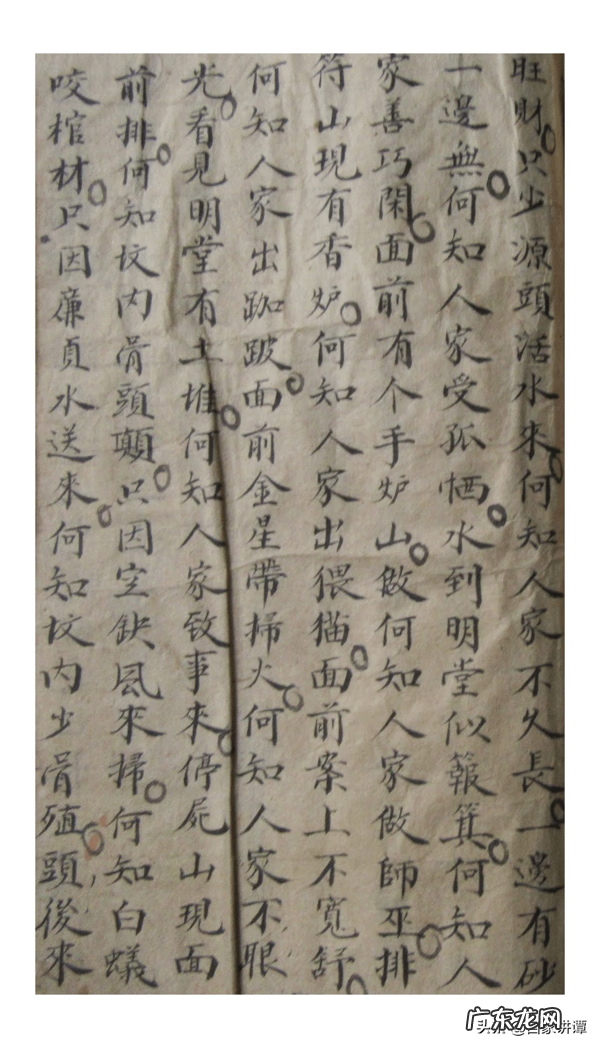 旺財只少源頭活水來何知人家不久長一邊有砂
一邊無何知人家受孤恓水到明堂似簸箕何知人
家善巧閑面前有个手炉山做何知人家做師巫排
符山現有香炉何知人家出猥猫面前案上不寬舒
何知人家出跏跛面前金星帶掃火何知人家不眼
光看見明堂有土堆何知人家致事來停屍山現面
前排何知坟内骨頭顛只因空缺凨來掃何知白蟻
咬棺材只因廉貞水送來何知坟内少骨殖頭後來
广东龙网